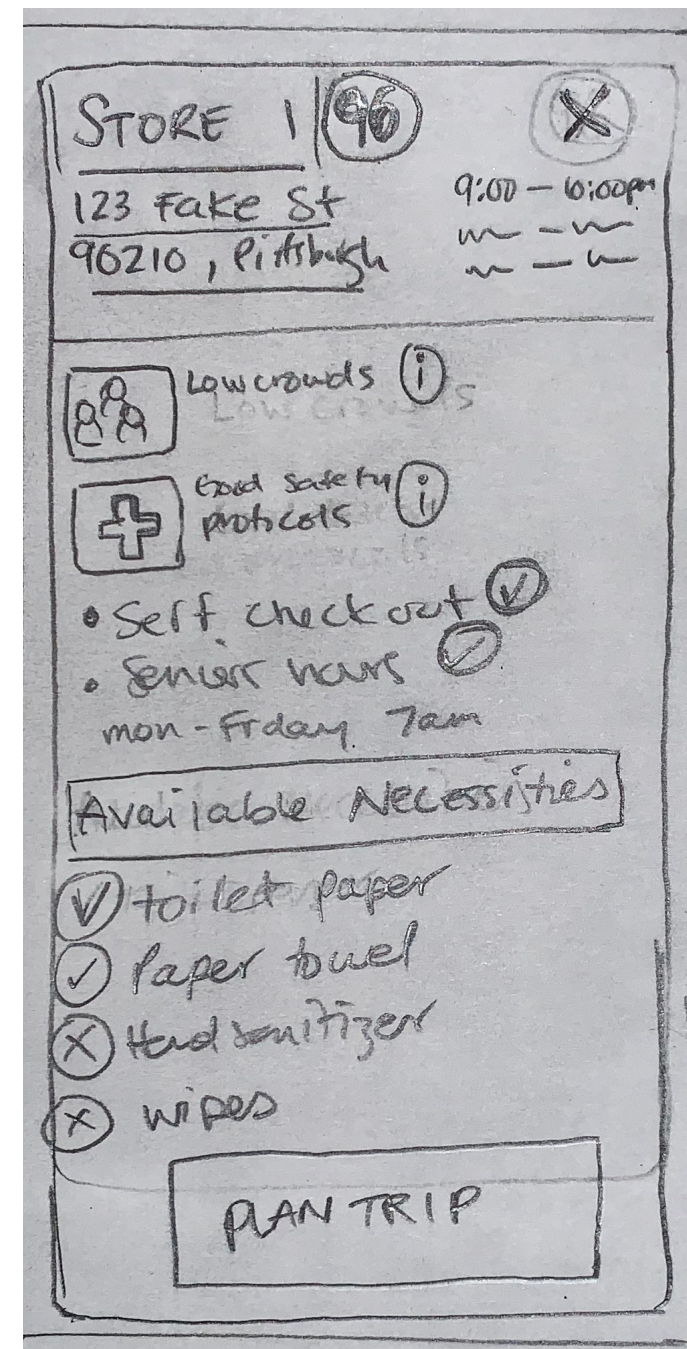 STORE 1 96 X
123 Fake St
9:00 - 10:00pm
96210, Pittsburgh
Low crowds i
Good safety i
protocols
• Self check out
• Senior hours
mon - Frday 7am
Available Necessisties
toilet paper
Paper towel
Hand sanitizer
wipes
PLAN TRIP